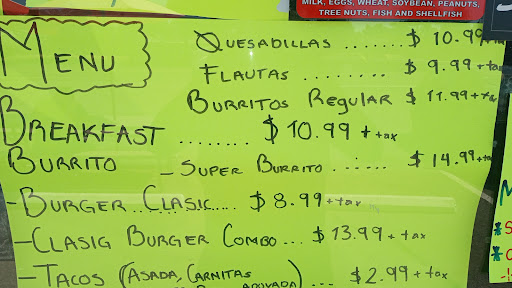 MILK, EGGS, WHEAT, SOYBEAN, PEANUTS,
TREE NUTS, FISH AND SHELLFISH
MENU
QUESADILLAS ....... $ 10.99 + tax
FLAUTAS ........ $ 9.99 + tax
BURRITOS REGULAR $ 11.99 + tax
BREAKFAST ........ $ 10.99 + tax
BURRITO - SUPER BURRITO ...... $ 14.99 + tax
- BURGER .. CLASIC .... $ 8.99 + tax
- CLASIG BURGER COMBO ... $ 13.99 + tax
- TACOS (ASADA, CARNITAS ... $ 2.99 + tax
ADOVADA)